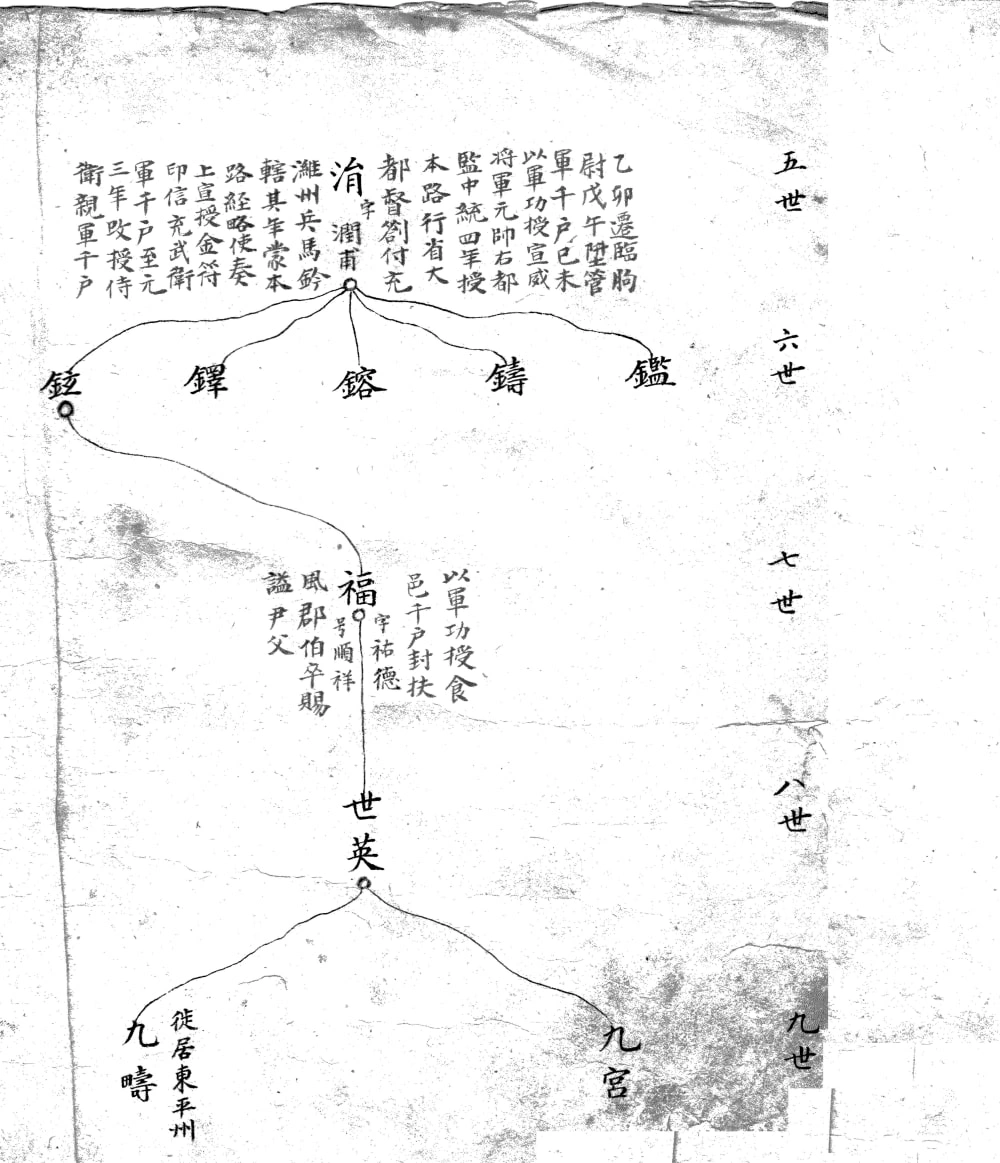 五世
乙卯遷臨朐
尉戊午陞管
軍千户己未
以軍功授宣威
将軍元帥右都
監中統四年授
本路行省大
都督劄付充
淯
字潤甫
濰州兵馬鈐
轄其年蒙本
路経略使奏
上宣授金符
印信充武衛
軍千户至元
三年改授侍
衛親軍千户
六世
鑑
鑄
鎔
鐸
鉉
七世
以軍功授食
邑千户封扶
福
字祐德
号順祥
風郡伯卒賜
謚尹父
八世
世英
九世
九宮
徙居東平州
九疇